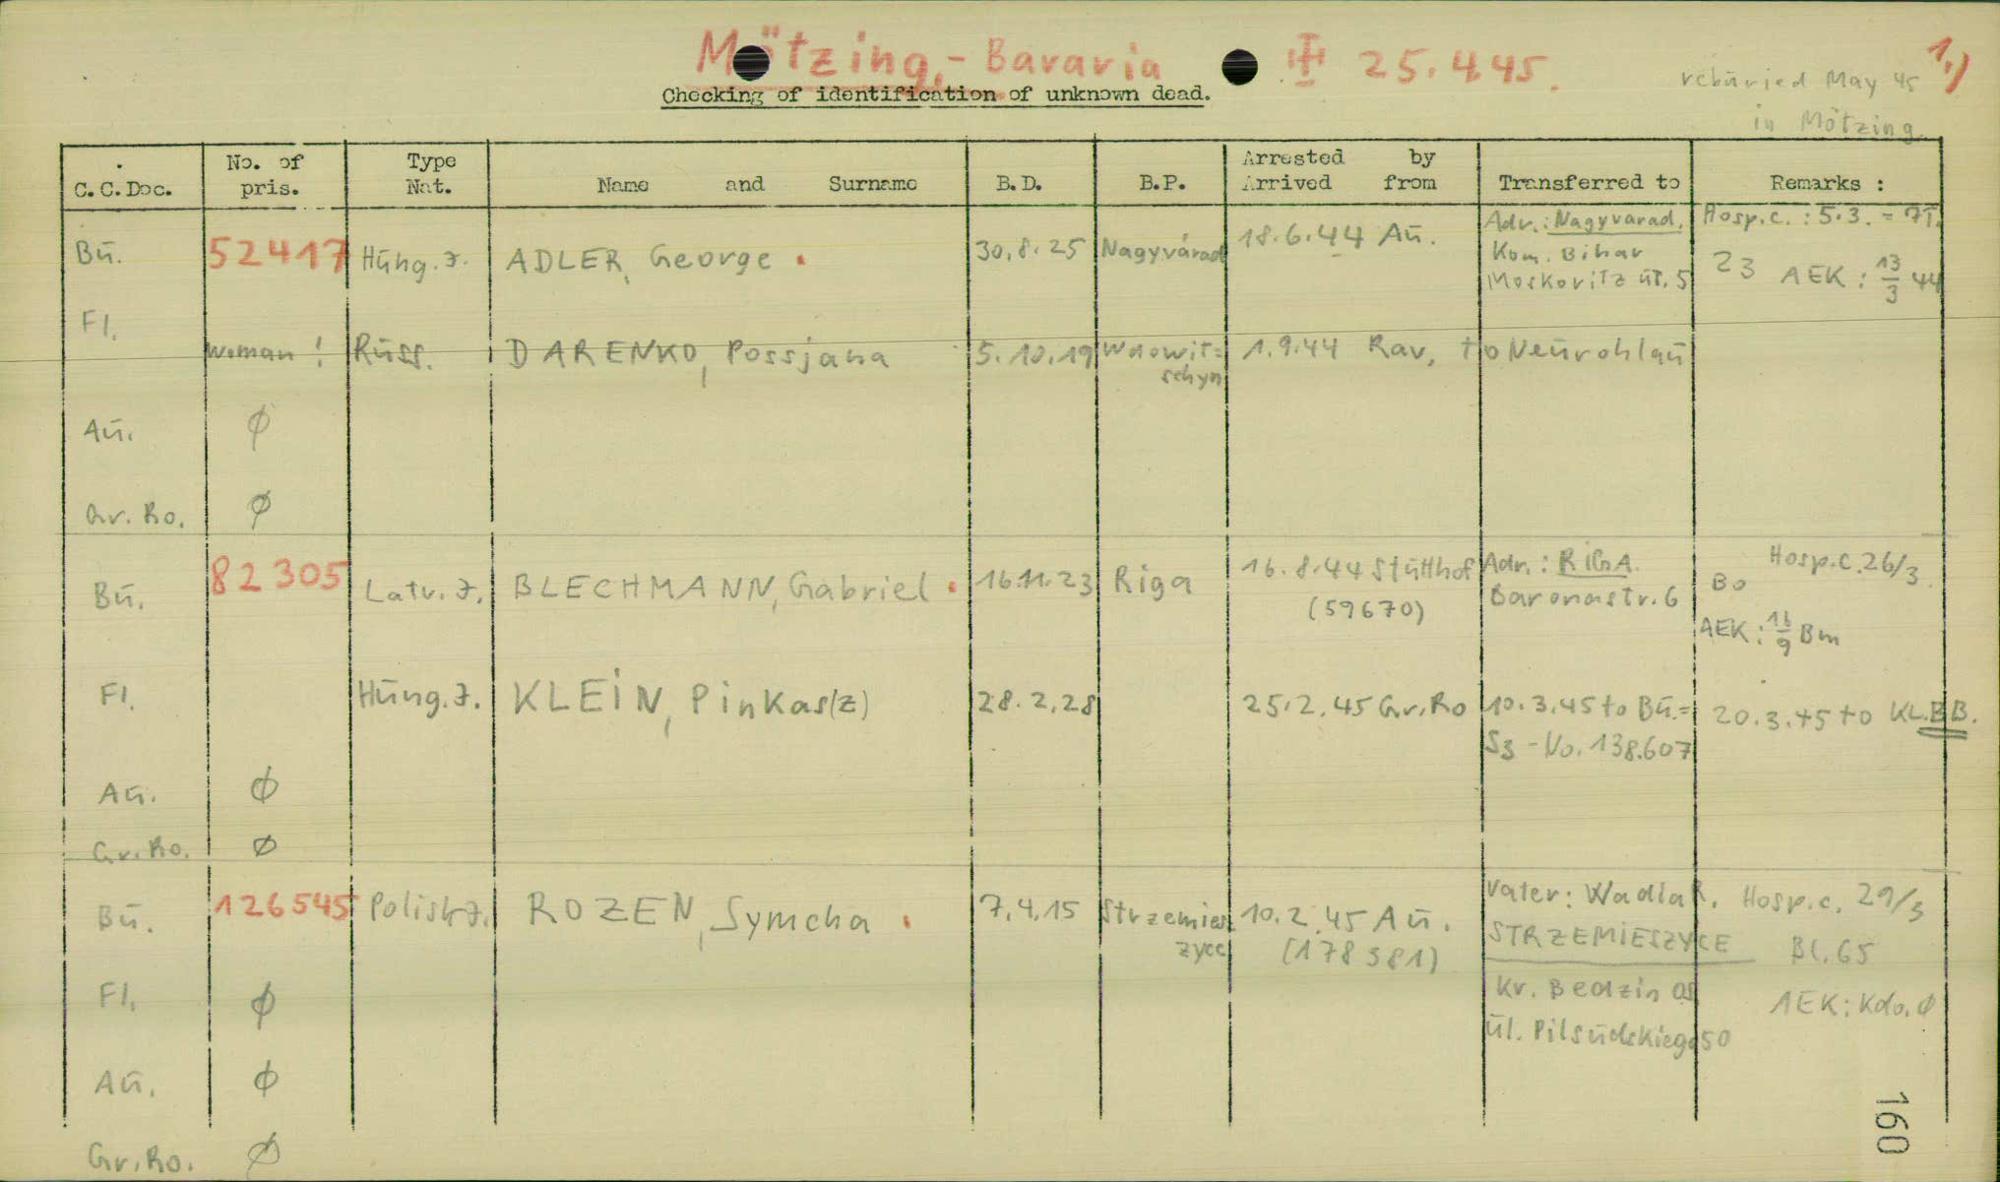 Mötzing,- Bavaria 25.4.45. 1.)
Checking of identification of unknown dead.
reburied May 45
in Mötzing
C.C.Doc. No. of pris. Type Nat. Name and Surname B.D. B.P. Arrested by Arrived from Transferred to Remarks :
Bū. 52417 Hūng. J. ADLER, George . 30.8.25 Nagyvárad 18.6.44 Aū. Adr.: Nagyvarad, Hosp.c. : 5.3. =
Kom. Bihar 23 AEK : 13/3 44
Moskovitz ūt. 5
Fl. woman ! Rūss. DARENKO, Possjana 5.10.19 1.9.44 Rav, to Neūrohlaū
schyn
Aū. ϕ
Gr. Ro. ϕ
Bū. 82305 Latv. J. BLECHMANN, Gabriel . 16.11.23 Riga 16.8.44 Stūtthof Adr.: RiGA. Hosp.c. 26/3
(59670) Baronastr. 6 Bo
AEK : 16/9 Bm
Fl. Hūng. J. KLEiN, Pinkas(z) 28.2.28 25.2.45 Gr.Ro 10.3.45 to Bū.= 20.3.45 to KL.BB.
S3 - No. 138.607
Aū. ϕ
Gr. Ro. ϕ
Bū. 126545 Polish J. ROZEN, Symcha . 7.4.15 Strzemies zyce 10.2.45 Aū. Vater: Wadla R. Hosp.c. 29/3
(178381) STRZEMiESZYCE Bl. 65
Fl. ϕ Kr. Bedzin OS AEK: Kdo. ϕ
ūl. Pilsūdskiego 50
Aū. ϕ
Gr. Ro. ϕ
160